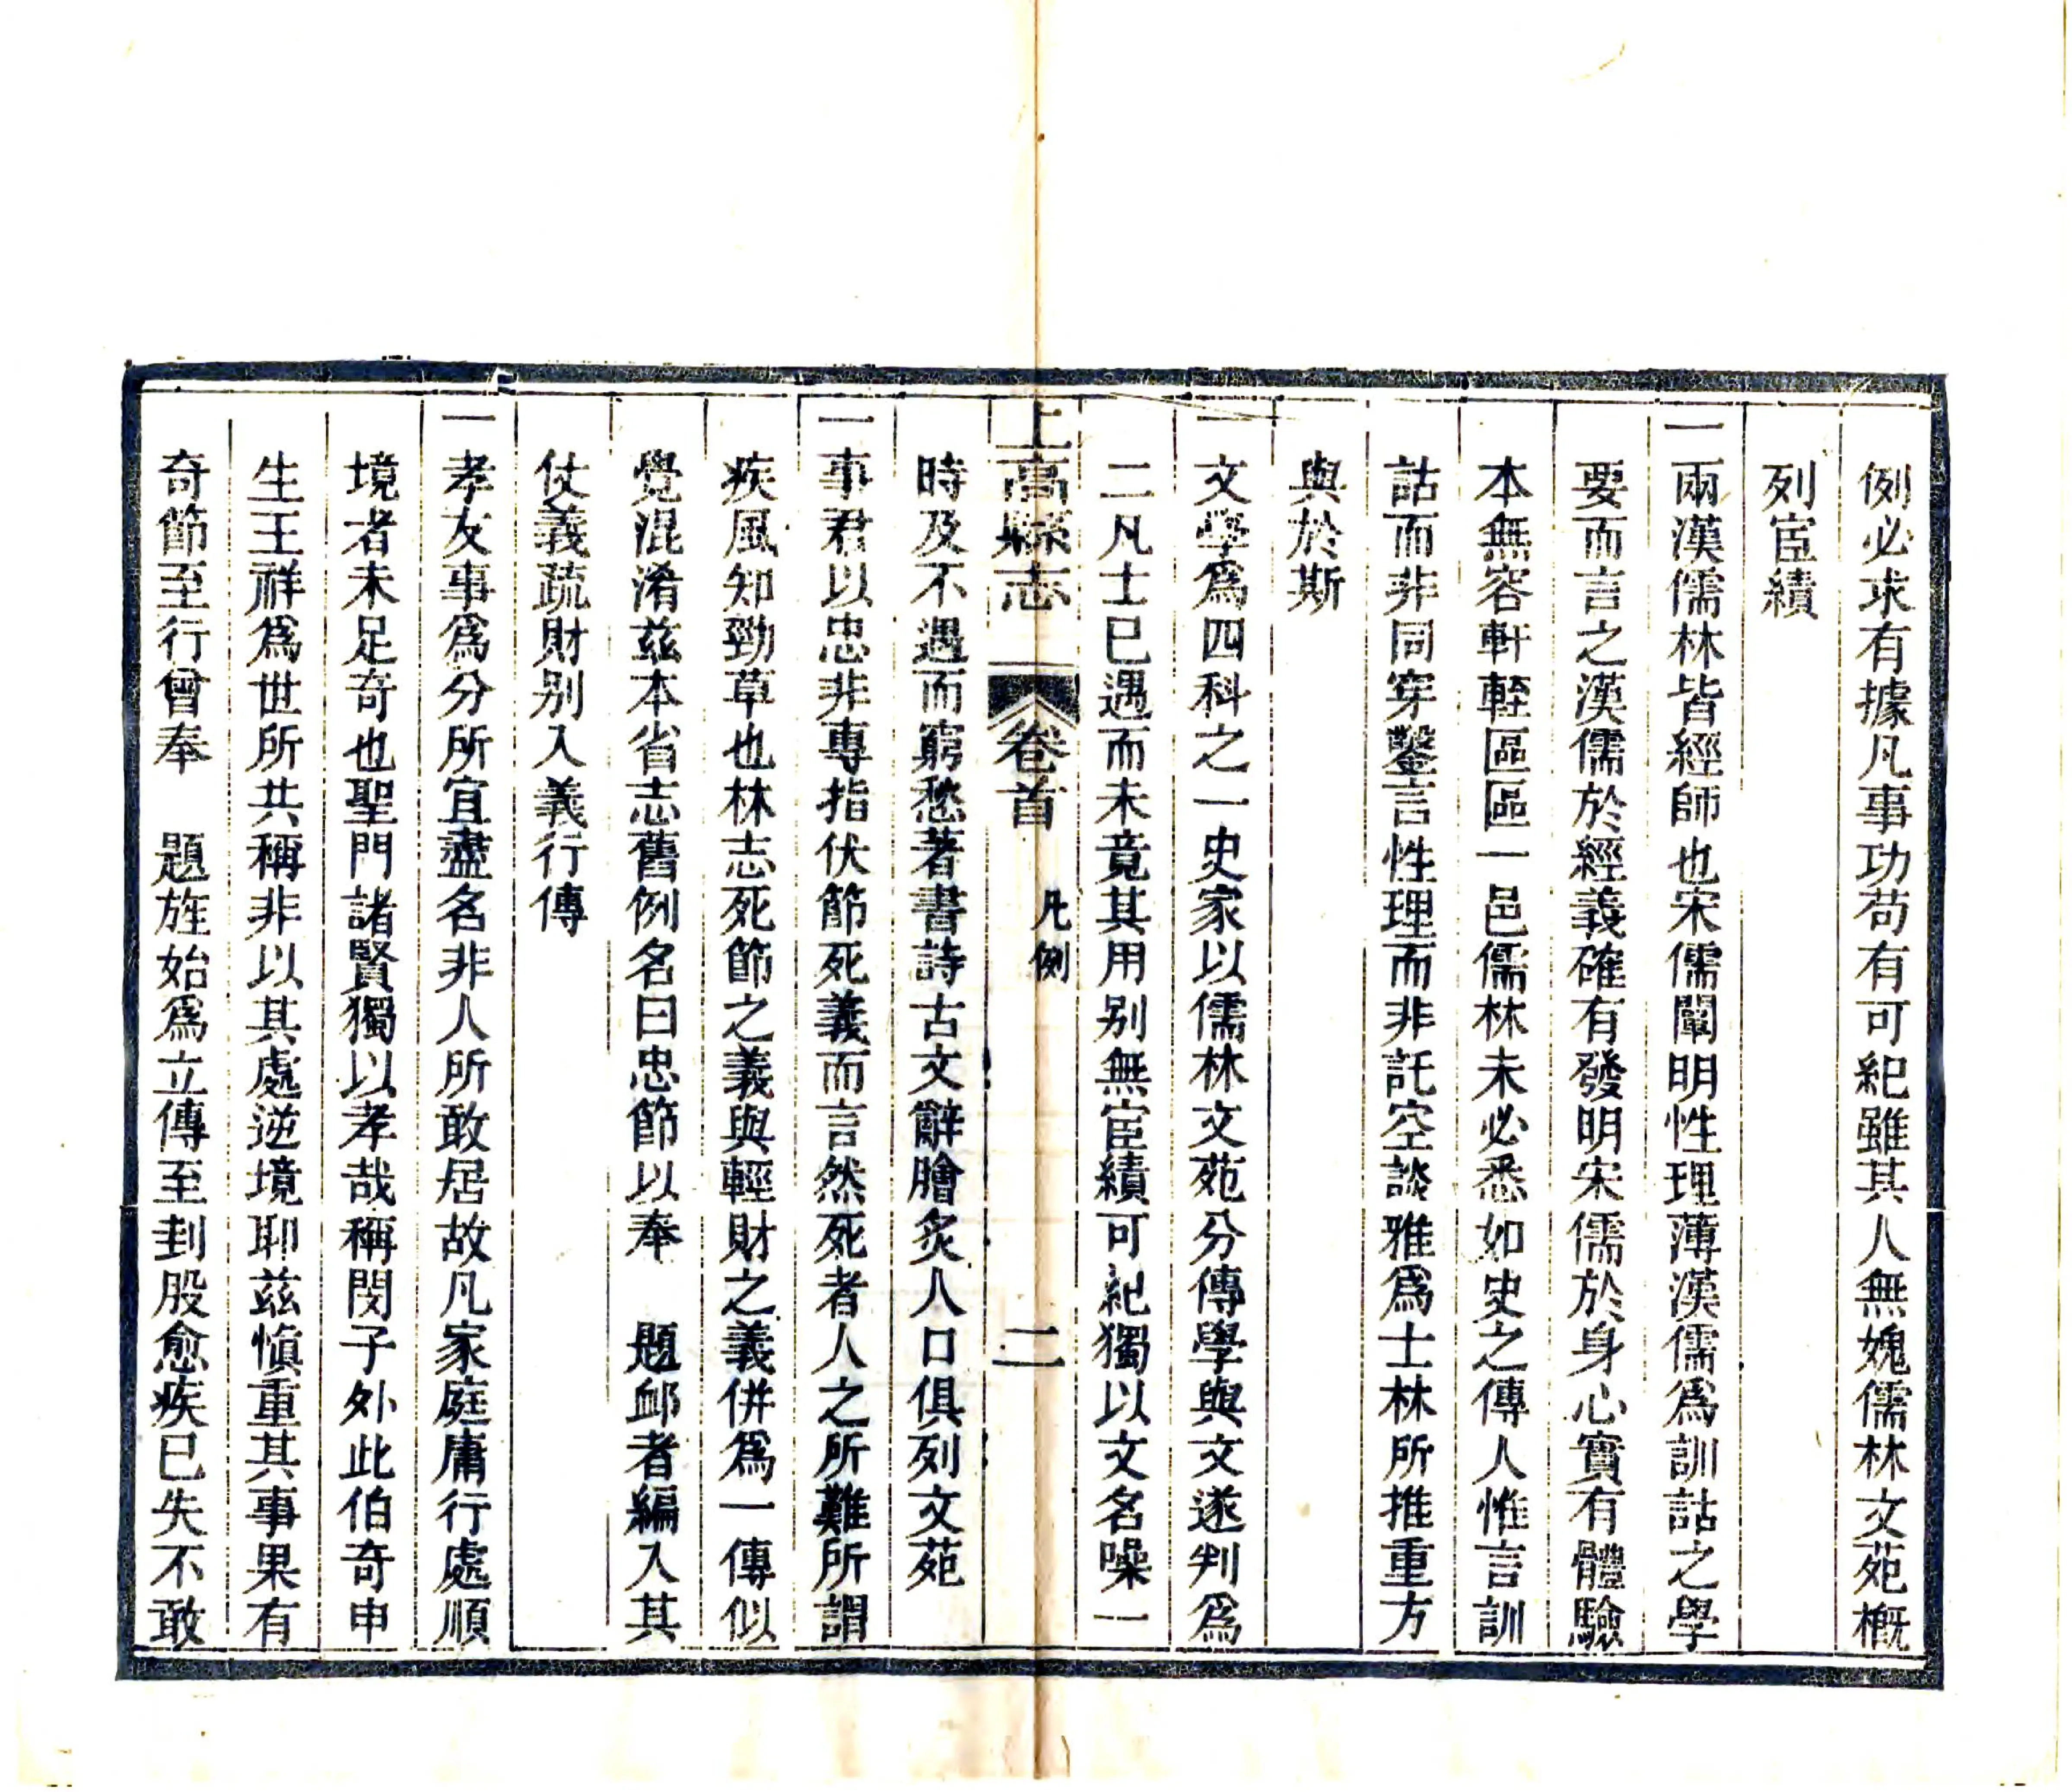 例必求有據凡事功苟有可紀雖其人無媿儒林文苑槪
列宦績
一兩漢儒林皆經師也宋儒闡明性理薄漢儒爲訓詁之學
要而言之漢儒於經義確有發明宋儒於身心實有體驗
本無容軒輊區區一邑儒林未必悉如史之傳人惟言訓
詁而非同穿鑿言性理而非託空談雅爲士林所推重方
與於斯
一文學爲四科之一史家以儒林文苑分傳學與文遂判爲
二凡士已遇而未竟其用别無宦績可紀獨以文名噪一
上高縣志 卷首 凡例 二
時及不遇而窮愁著書詩古文辭膾炙人口俱列文苑
一事君以忠非專指伏節死義而言然死者人之所難所謂
疾風知勁草也林志死節之義與輕財之義併爲一傳似
覺混淆兹本省志舊例名曰忠節以奉　題䘏者編入其
仗義疏財别入義行傳
一孝友事爲分所宜盡名非人所敢居故凡家庭庸行處順
境者未足奇也聖門諸賢獨以孝哉稱閔子外此伯奇申
生王祥爲世所共稱非以其處逆境耶兹愼重其事果有
奇節至行曾奉　題旌始爲立傳至刲股愈疾已失不敢